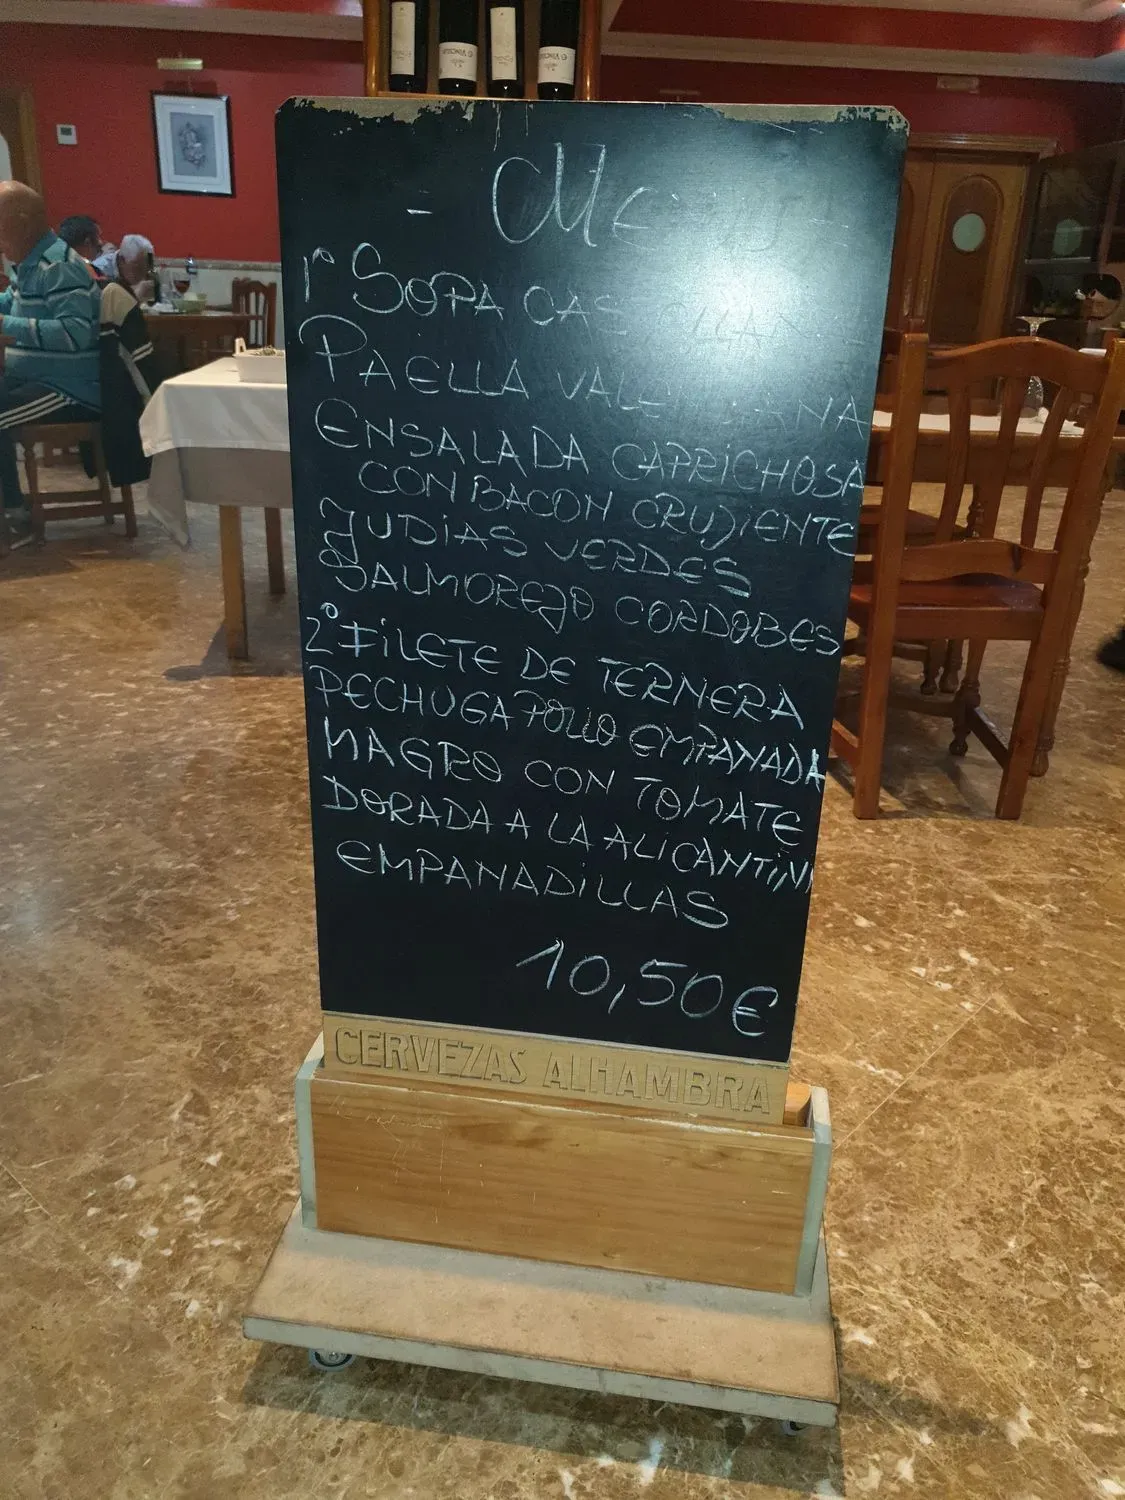 - Menu -
1º Sopa Castellana
Paella Valenciana
Ensalada Caprichosa
con bacon crujiente
Judias verdes
Salmorejo Cordobes
2º Filete de ternera
Pechuga pollo empanada
Magro con tomate
Dorada a la alicantin
Empanadillas
10,50€
CERVEZAS ALHAMBRA